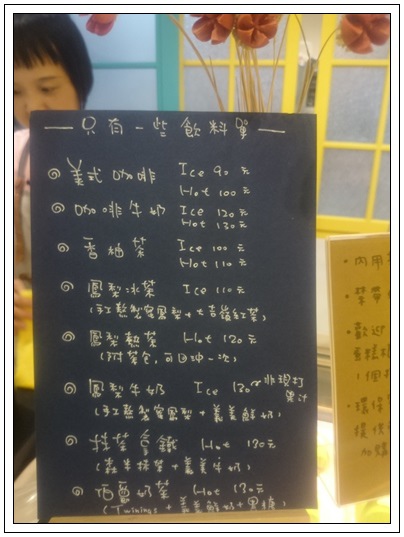 只有一些飲料單
美式咖啡 Ice 90 元
Hot 100 元
咖啡牛奶 Ice 120 元
Hot 130 元
香柚茶 Ice 100 元
Hot 110 元
鳳梨冰茶 Ice 110 元
(手工熬製蜜鳳梨+大吉嶺紅茶)
鳳梨熱茶 Hot 120 元
(附茶包,可回沖一次)
鳳梨牛奶 Ice 130 非現打
果汁
(手工熬製蜜鳳梨+義美鮮奶)
抹茶拿鐵 Hot 130元
(森半抹茶+義美牛奶)
伯爵奶茶 Hot 130元
(Twinings+義美鮮奶+黑糖)
內用
歡迎
蛋糕
1個
環保
提供